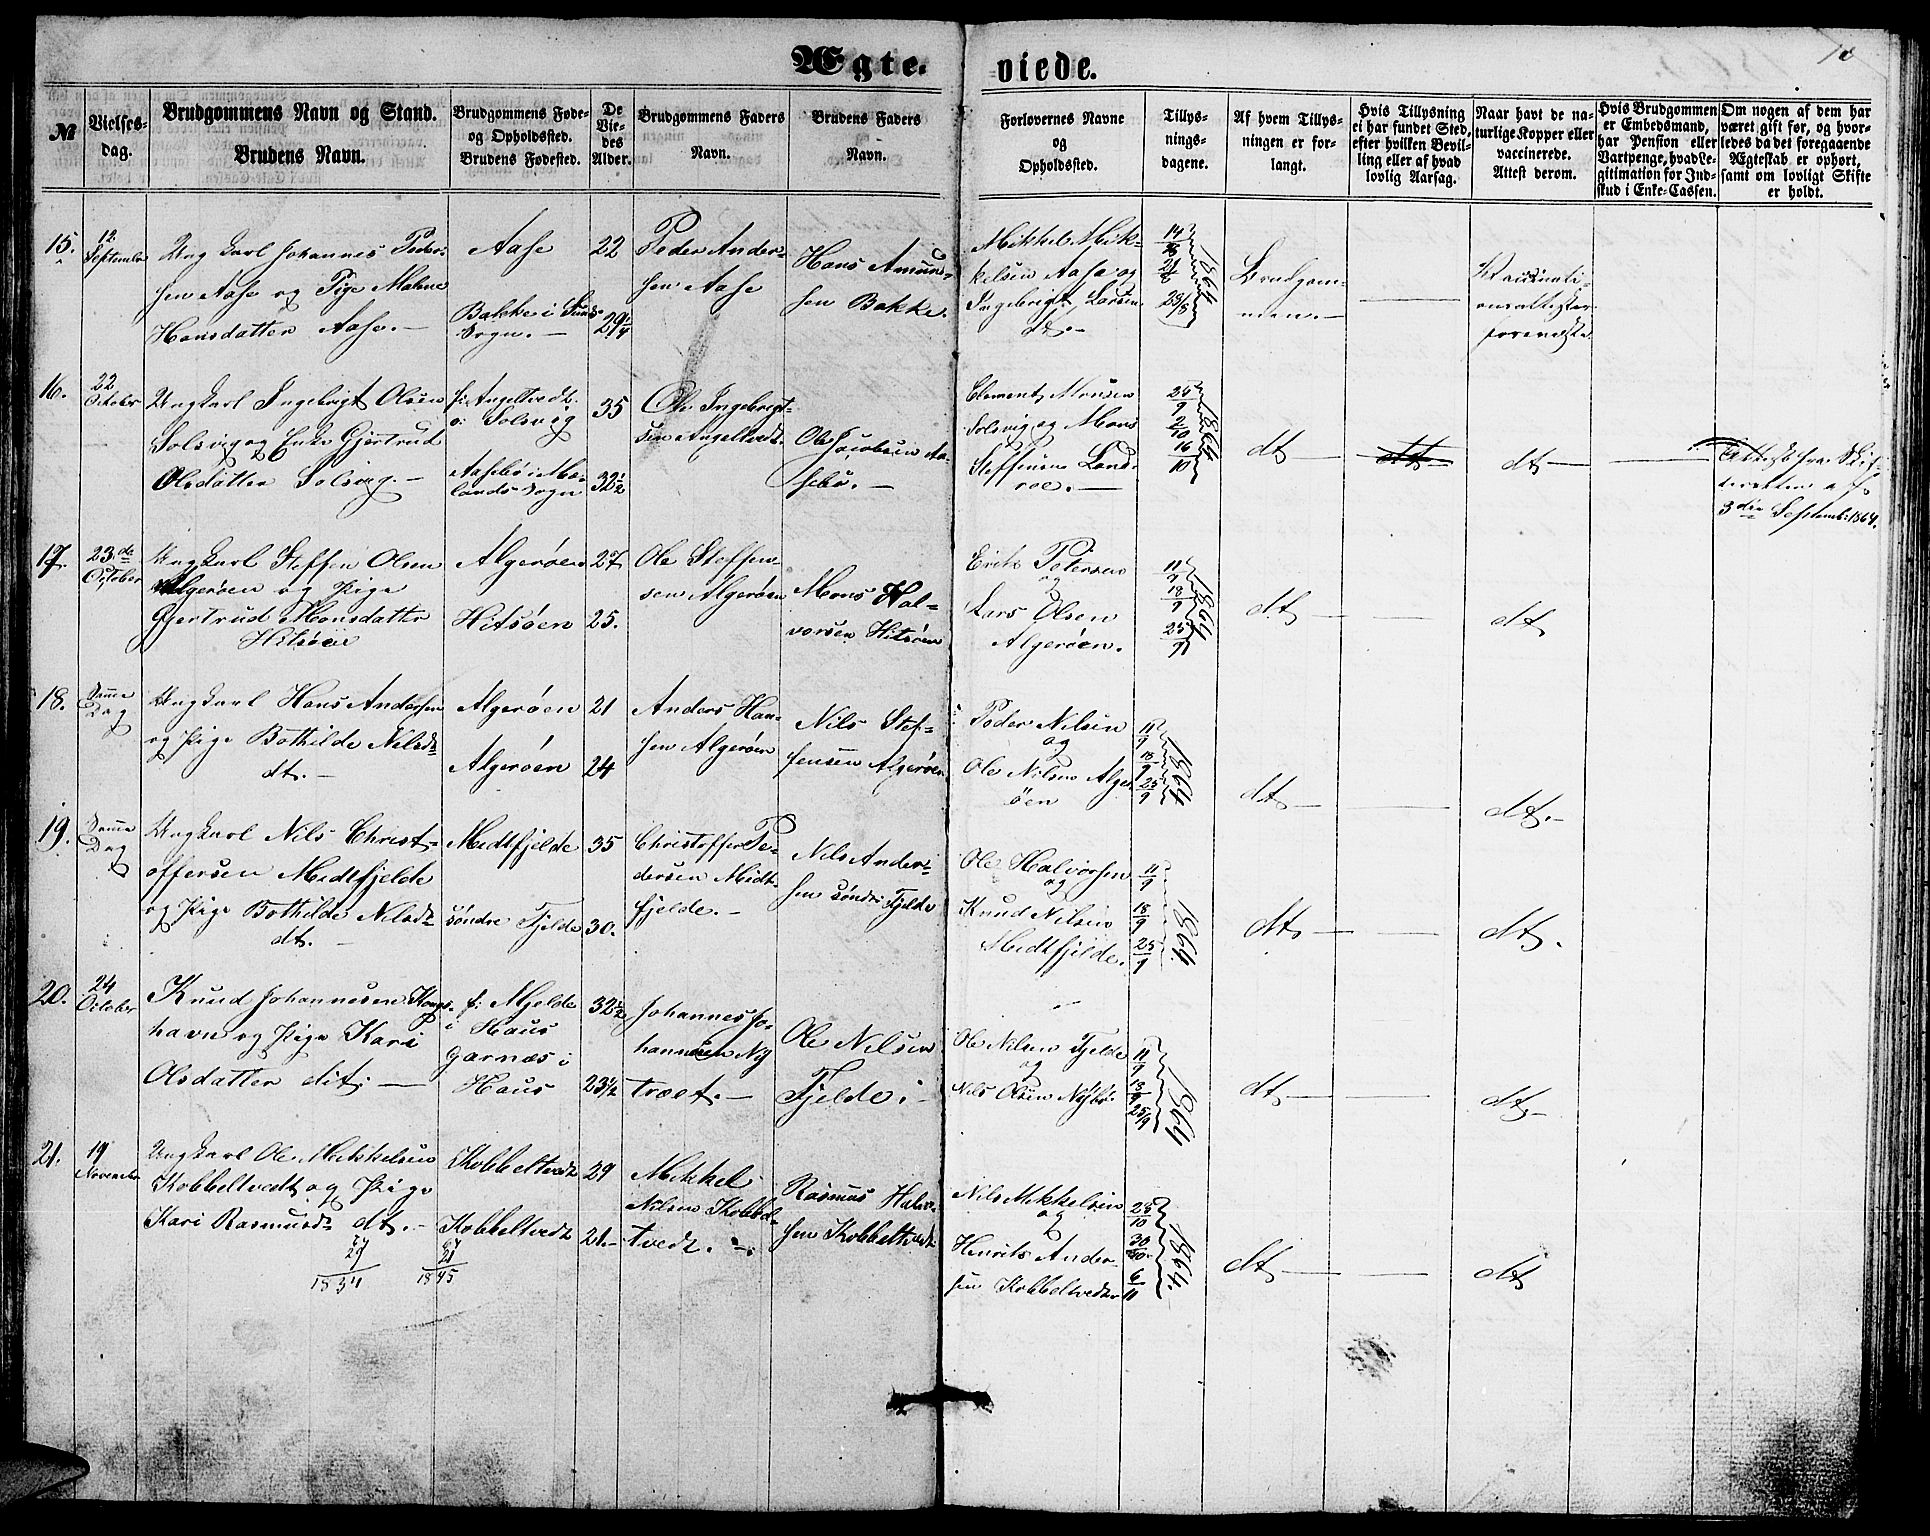 Ægte- viede.
10
№
Vielses-
dag.
Brudgommens Navn og Stand.
Brudens Navn.
Brudgommens Føde-
og Opholdsted.
Brudens Fødested.
De
Vie-
des
Alder.
Brudgommens Faders
Navn.
Brudens Faders
Navn.
Forlovernes Navne
og
Opholdssted.
Tillys-
nings-
dagene.
Af hvem Tillys-
ningen er for-
langt.
Hvis Tillysning
ei har fundet Sted,
efter hvilken Bevil-
ling eller af hvad
lovlig Aarsag.
Naar havt de na-
turlige Kopper eller
vaccinerede.
Attest derom.
Hvis Brudgommen
er Embedsmand,
har Pension eller
Vartpenge, hvad Le-
gitimation for Ind-
skud i Enke-Cassen.
Om nogen af dem har
været gift før, og hvor-
ledes da det foregaaende
Ægteskab er ophørt,
samt om lovligt Skifte
er holdt.
15.
12
September
Ungkarl Johannes Peder-
sen Aase og Pige Malene
Hansdatter Aase.
Aase
Bakke i Sunds
Sogn.
22
29 1/4
Peder Ander-
sen Aase
Hans Amund-
sen Bakke.
Mikkel Mik-
kelsen Aase og
Ingebrigt Larsen
dt.
14/8
21/8
28/8
1864
Brudgom-
men.
Vaccinati-
onsattester
foreviste
16.
22
October
Ungkarl Ingebrigt Olsen
Solsvig og Enke Gjertrud
Olsdatter Solsvig.
f: Angeltvedt
o: Solsvig
Aasebø i Mæ-
lands Sogn
35
32 1/2
Ole Ingebrigt-
sen Angeltvedt
Ole Jacobsen Aa-
sebø.
Clement Monsen
Solsvig og Mons
Steffensen Land-
roe.
25/9
2/10
16/10
1864
dt
dt
dt
Attest fra Skif-
teretten af
3die Septemb: 1864.
17.
23de
October
Ungkarl Steffen Olsen
Algerøen og Pige
Gjertrud Monsdatter
Hitsøen
Algerøen
Hitsøen
27
25.
Ole Steffen-
sen Algerøen
Mons Hal-
vorsen Hitsøen
Erik Petersen
og
Lars Olsen
Algerøen.
11/9
18/9
25/9
1864
dt
dt
18.
Samme
Dag
Ungkarl Hans Andersen
og Pige Bothilde Nilsdt
dt.
Algerøen
Algerøen
21
24
Anders Han-
sen Algerøen
Nils Stef-
fensen Algerøen
Peder Nilsen
og
Ole Nilsen Alger-
øen
11/9
18/9
25/9
1864
dt
dt.
19.
Samme
Dag
Ungkarl Nils Christ-
offersen Midtfjelde
og Pige Bothilde Nilsdt
dt.
Midtfjelde
søndre Fjelde
35
30.
Christoffer Pe-
dersen Midt-
fjelde.
Nils Ander-
sen søndre Fjelde
Ole Halvorsen
og
Knud Nilsen
Midtfjelde.
11/9
18/9
25/9
1864
dt
dt.
20.
24
October
Knud Johannesen Kongs-
havn og Pige Kari
Olsdatter dit:
f: Mjelde
i Haus
Garnæs i
Haus
32 1/2
23 1/2
Johannes Jo-
hannesen Ny-
træet.
Ole Nilsen
Fjelde.
Ole Nilsen Fjelde
og
Nils Olsen Nybø.
11/9
18/9
25/9
1864
dt
dt
21.
19
November
Ungkarl Ole Mikkelsen
Kobbeltvedt og Pige
Kari Rasmusdt dt.
Kobbeltvedt
Kobbeltvedt
29
21.
Mikkel
Nilsen Kobbel-
tvedt.
Rasmus Halvor-
sen Kobbeltvedt
Nils Mikkelsen
og
Henrik Ander-
sen Kobbeltvedt
23/10
30/10
6/11
1864.
dt
dt
64
29
1834
64
21
1845